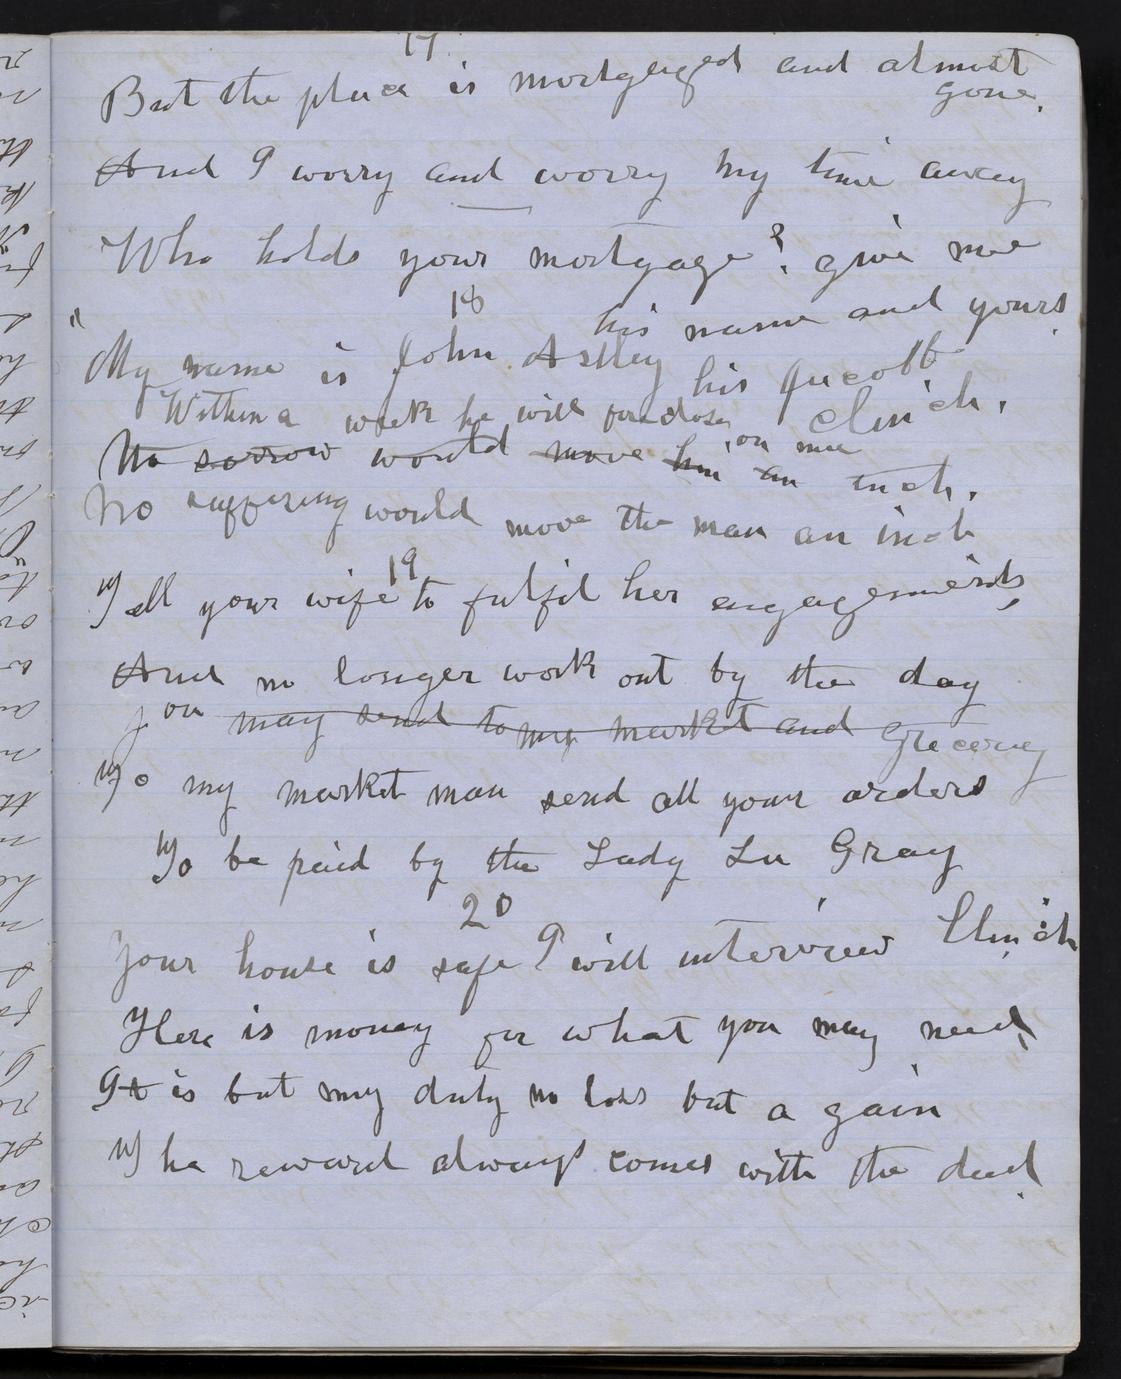 17
But the place is mortgaged and almost
gone.
And I worry and worry my time away
Who holds your mortgage? give me
his name and yours
18
"My name is John Astley his Jacob
Clinch.
Within a week he will foreclose on me
No sorrow would move him an inch.
No suffering would move the man an inch
19
Tell your wife to fulfil her engagements,
And no longer work out by the day
you may send to my market and Grocery
To my market man send all your orders
To be paid by the Lady Lu Gray
20
Your house is safe I will interview Clinch
Here is money for what you may need,
It is but my duty no loss but a gain
The reward always comes with the deed.